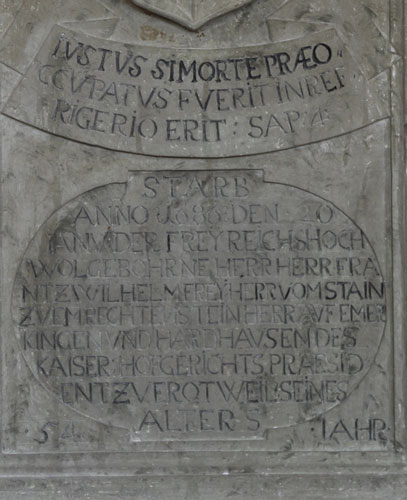 IUSTVS SI MORTE PRÆO-
CCVPATVS FVERIT IN REF
RIGERIO ERIT : SAP : 4
STARB
ANNO DEN 20
IANV: DER FREY REICHS HOCH
WOLGEBOHRNE HERR HERR FRA
NTZ WILHELM FREYHERR VOM STAIN
ZVEM RECHTENSTEIN HERR AVF EMER
KINGEN VND HARDHAVSEN DES
KAISER: HOFGERICHTS PRAESID
ENT ZVE ROTWEIL SEINES
ALTERS
54 IAHR